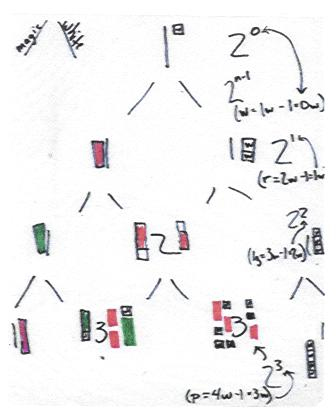 Magic White
2⁰
2ⁿ⁻¹
(w = 1w - 1 = 0w)
w
w
2¹
(r = 2w - 1 = 1w)
2
2²
(lg = 3w - 1 = 2w)
3
3
2³
(p = 4w - 1 = 3w)